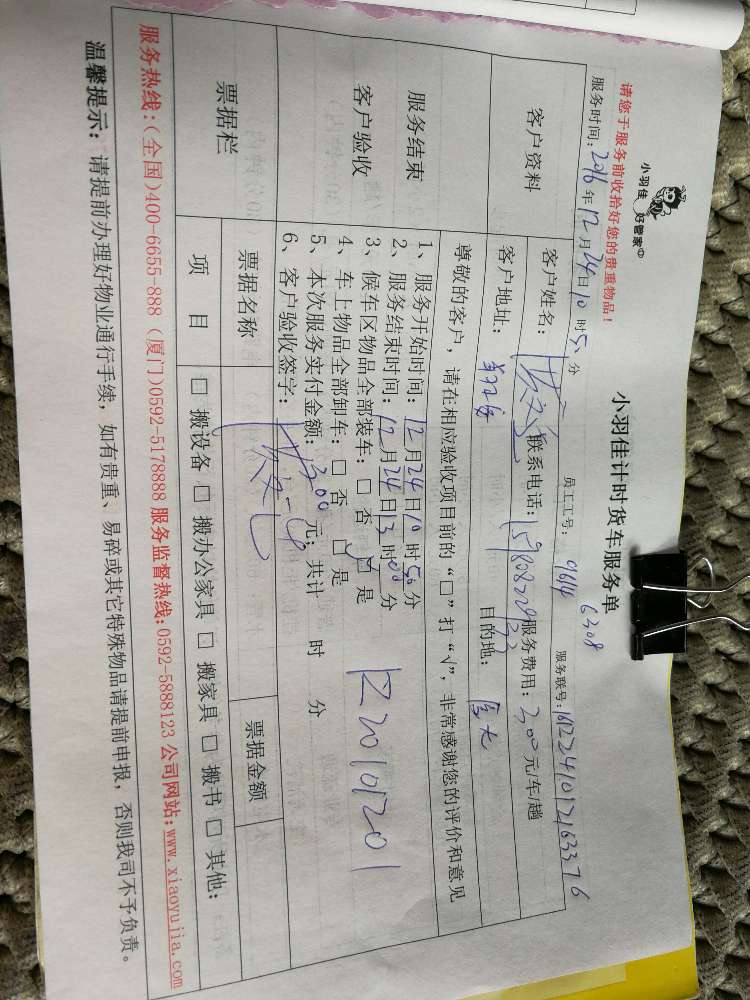 小羽佳 好管家
小羽佳计时货车服务单
请您于服务前收拾好您的贵重物品!
员工工号: 9614 6308
服务时间: 2016年12月24日10时50分
服务联号: 16122410121633376
客户资料
客户姓名: 联系电话: 服务费用: 300元/车/趟
客户地址: 目的地:
尊敬的客户,请在相应验收项目前的“□”打“√”,非常感谢您的评价和意见
服务结束
客户验收
1、服务开始时间: 12月24日10时50分
2、服务结束时间: 12月24日13时00分
3、候车区物品全部装车: □ 否 □ 是
4、车上物品全部卸车: □ 否 □ 是
5、本次服务实付金额: 300元; 共计 时 分
6、客户验收签字:
票据栏
票据名称 票据金额
项目 □ 搬设备 □ 搬办公家具 □ 搬家具 □ 搬书 □ 其他:
服务热线:(全国)400-6655-888 (厦门)0592-5178888 服务监督热线:0592-5888123 公司网站:www.xiaoyujia.com
温馨提示: 请提前办理好物业通行手续,如有贵重、易碎或其它特殊物品请提前申报,否则我司不予负责。